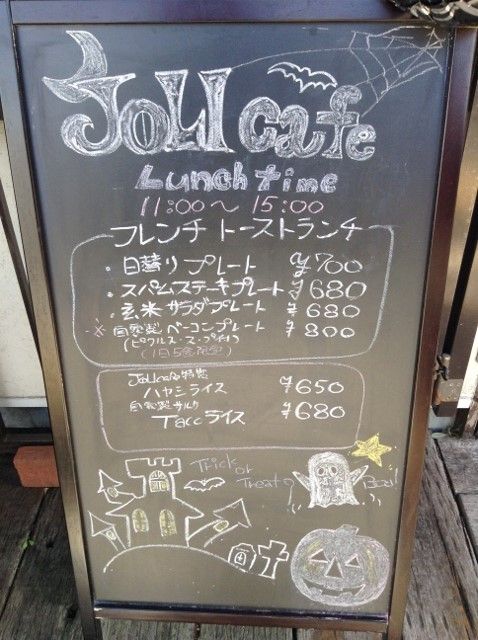 JOLI cafe
Lunch time
11:00～15:00
フレンチトーストランチ
・日替りプレート ¥700
・スパムステーキプレート ¥680
・玄米サラダプレート ¥680
※自家製ベーコンプレート ¥800
(ピクルス・スープ付)
(1日5食限定)
JOLI cafe特製
ハヤシライス ¥650
自家製サルサ
Tacoライス ¥680
Trick
or
Treat
Boo!